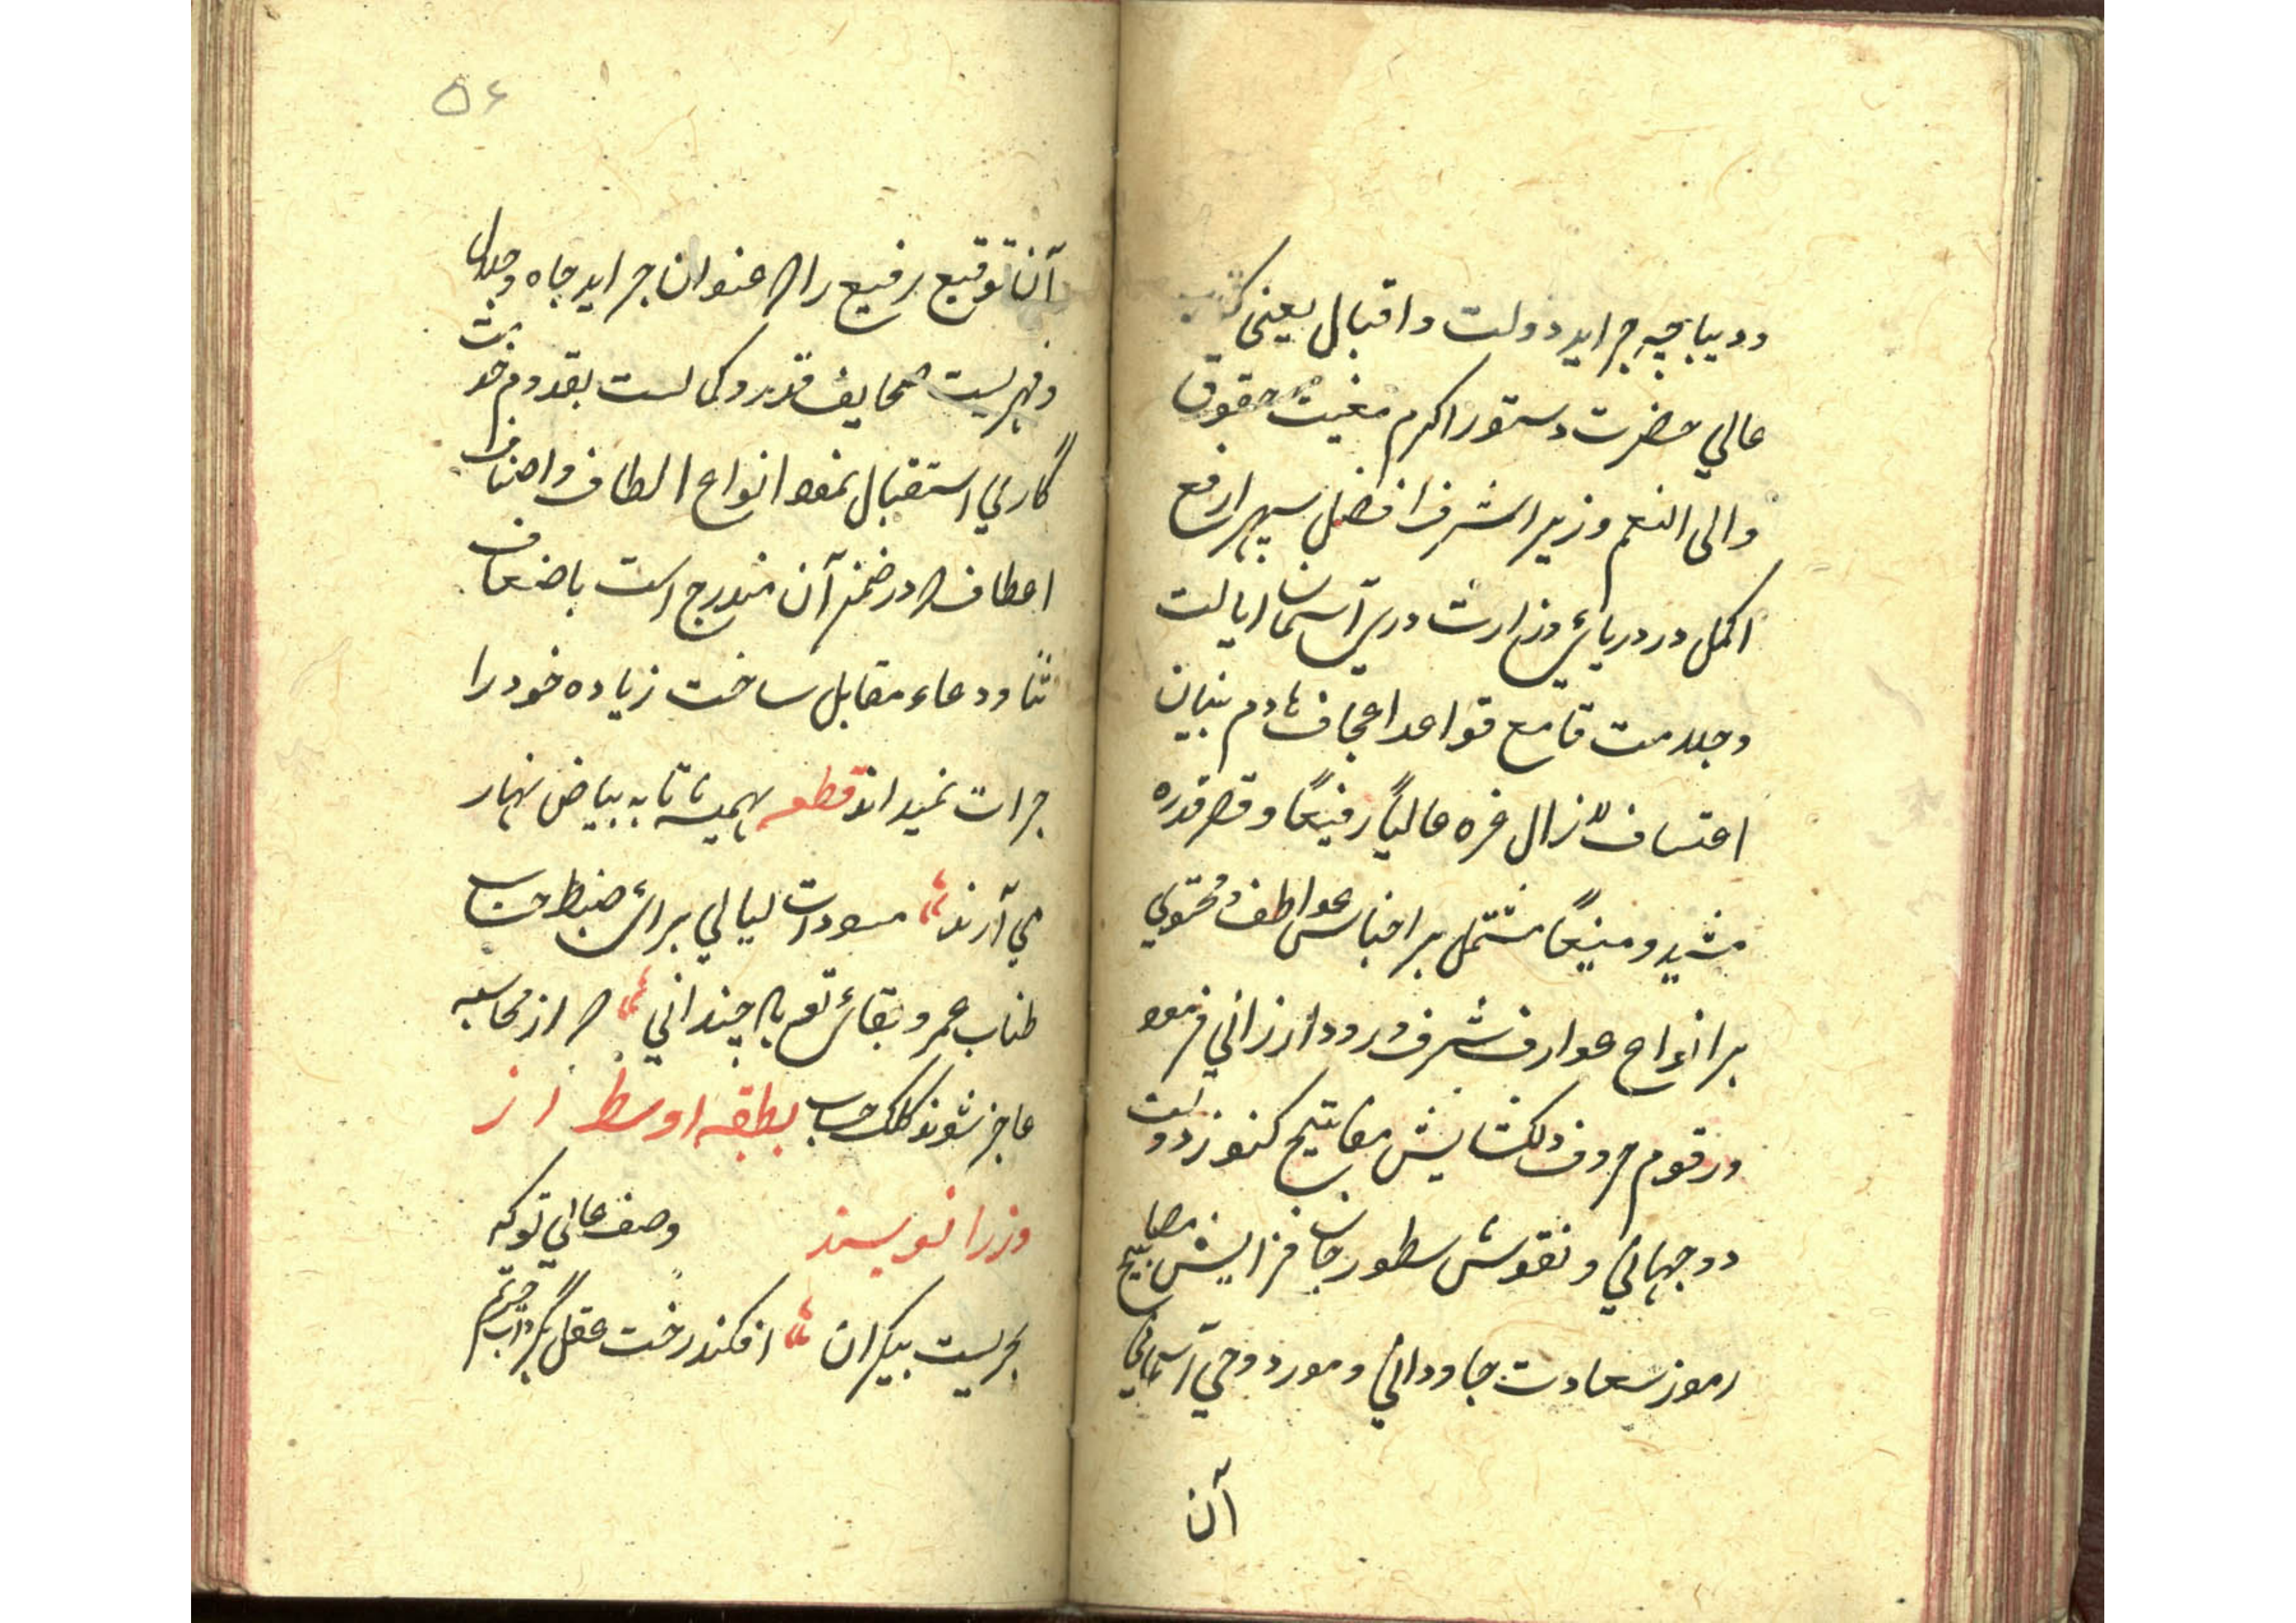 ودیباچه جراید دولت و اقبال یعنی کتاب
عالي حضرت دستور اکرم مغیث حقوق
والی النعم وزیر اشرف افضل سپهر ارفع
اکمل در دریائ وزارت دری آسمان ایالت
وجلامت قامع قواعد اعجاف هادم بنیان
اعتساف لازال غره عالیاً رفیعاً و قصر قدره
مشید و منیعاً مشتمل بر اجناس عواطف و محتوي
بر انواع عوارف شرف ورود ارزاني فرموده
ورقوم حروف دلکشایش مفاتیح کنوز دولت
دوجهاني و نقوش سطور جان فزایش مصابیح
رموز سعادت جاوداني و مورد وحي آسماني
آن
۵۶
آن توقیع رفیع را که عنوان جراید جاه وجلال
وفهرست صحایف قدر وکی است بقدوم خدمت
گاري استقبال نموده انواع الطاف واصناف
اعطاف که در ضمن آن مندرج است باضعاف
ثنا ودعاء مقابل ساخت زیاده خود را
جرات نمیداند قطعه همیشه تا به بیاض نهار
مي آرند مسودات لیالي برائ ضبط حساب
طناب عمر و بقائ تو باد چنداني که از محاسبه
عاجز شوند کلک حساب بطبقه اوسط از
وزرا نویسند وصف عالي تو که
بحریست بیکران افکند رخت عقل بگرداب حیرتم